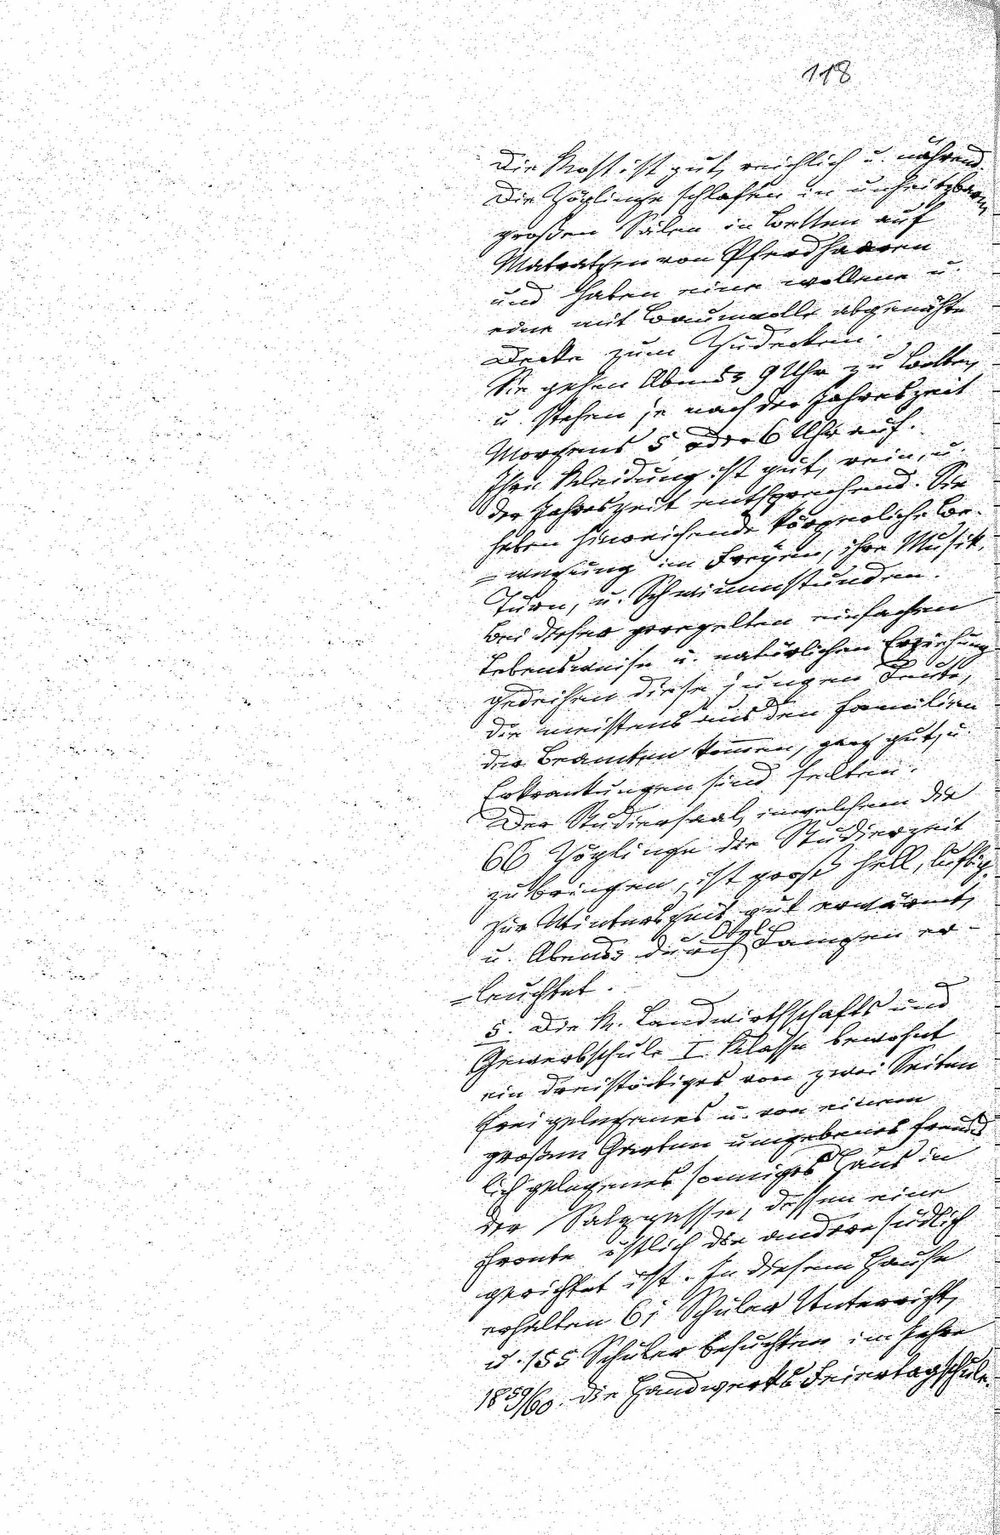 118
Die Kost ist gut, reichlich u. nährend.
Die Zöglinge schlafen in unheitzbaren
großen Sälen in Betten auf
Matratzen von Pferdhaaren
und haben eine wollene u.
eine mit Baumwolle abgenähte
Decke zum Zudecken.
Sie gehen Abends 9 Uhr zu Bette,
u. stehen je nach der Jahreszeit
Morgens 5 oder 6 Uhr auf.
Ihre Kleidung ist gut, rein, u.
der Jahreszeit entsprechend. Sie
haben hinreichende körperliche Be-
=wegung im Freyen, ihre Musik,
Turn, u. Schwimmstunden.
Bei dieser geregelten einfachen
Lebensweise u. natürlichen Erziehung
gedeihen diese jungen Leute,
die meistens aus den Familien
der Beamten kom̅en, ganz gut, u.
Erkrankungen sind selten.
Der Studiersaal, in welchem die
66 Zöglinge die Studierzeit
zubringen, ist groß hell, luftig,
zur Winterszeit gut erwärmt,
u. Abends durch Oehl Lampen er-
=leuchtet.
5. Die K. Landwirthschafts und
Gewerbschule I. Klasse bewohnt
ein dreistöckiges von zwei Seiten
frei gelegenes u. von einem
großen Garten umgebenes freund
lich gelegenes sonniges Haus in
der Salzgasse, dessen eine
Fronte östlich die andere südlich
gerichtet ist. In diesem Hause
erhalten 61 Schüler Unterricht,
u. 155 Schüler besuchten im Jahre
1859/60. die Handwerks Feiertagschule.